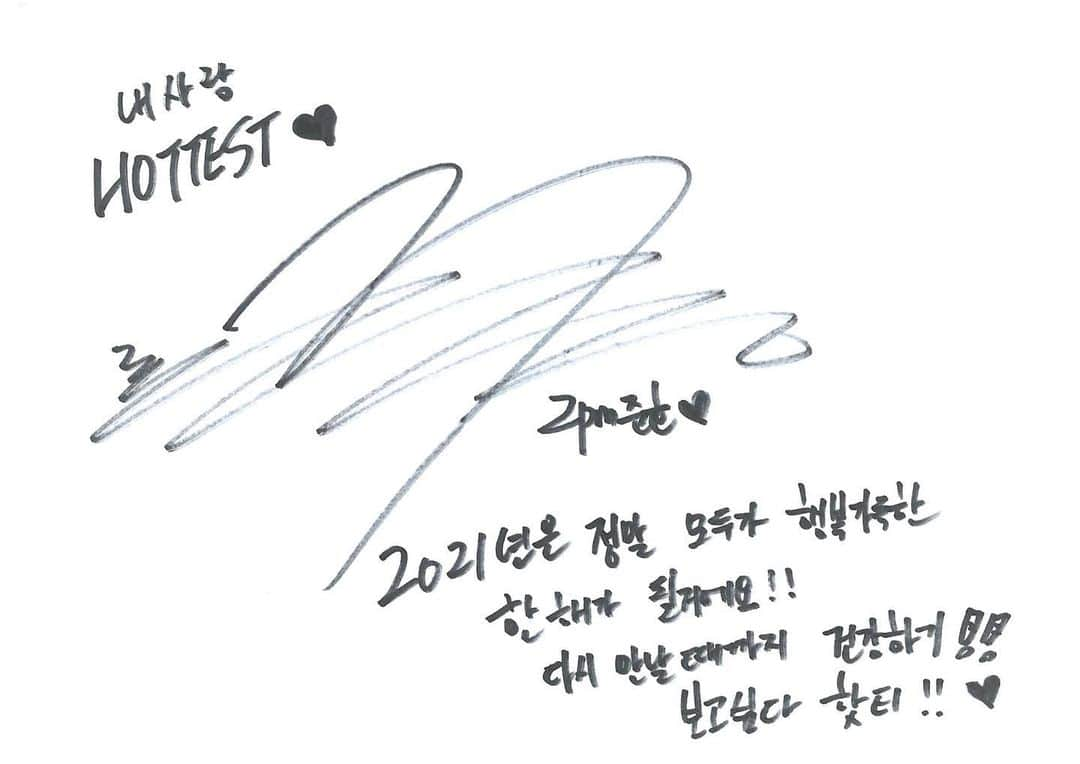 내 사랑
HOTTEST ♥
2pm준호 ♥
2021년은 정말 모두가 행복가득한
한 해가 될거에요!!
다시 만날 때까지 건강하기
보고싶다 핫티!! ♥